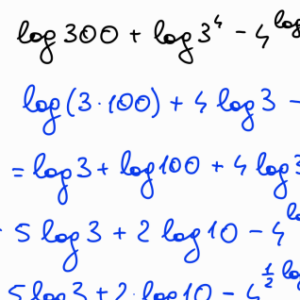 log 300 + log 3⁴ - 4^log
log (3·100) + 4 log 3 -
= log 3 + log 100 + 4 log 3
5 log 3 + 2 log 10 - 4
5 log 3 + 2·log 10 - 4^½ log